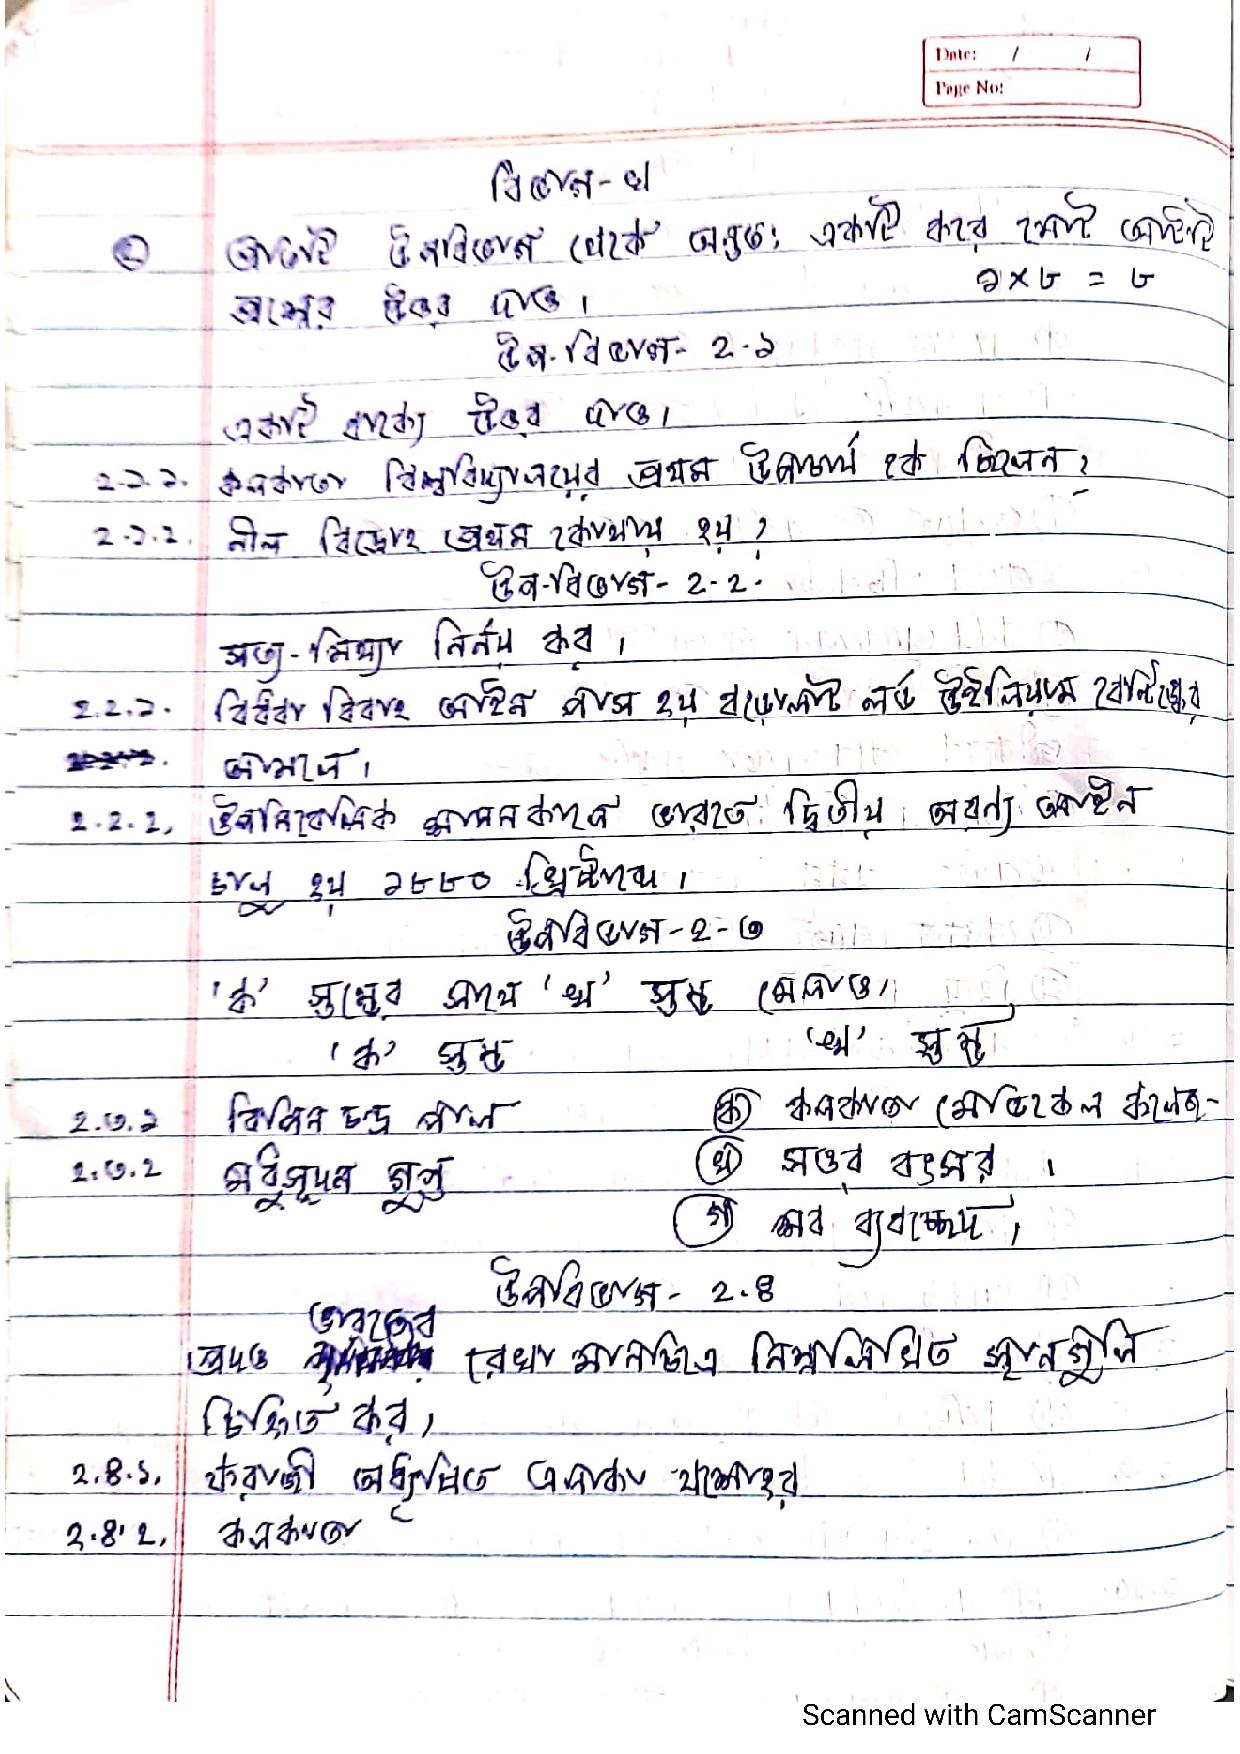 Date: / /
Page No:
বিভাগ-খ
২ প্রতিটি উপবিভাগ থেকে অন্তত: একটি করে মোট আটটি
১×৮ = ৮
প্রশ্নের উত্তর দাও।
উপ-বিভাগ- ২.১
একটি বাক্যে উত্তর দাও।
২.১.১. কলকাতা বিশ্ববিদ্যালয়ের প্রথম উপাচার্য কে ছিলেন?
২.১.২. নীল বিদ্রোহ প্রথম কোথায় হয়?
উপ-বিভাগ- ২.২.
সত্য-মিথ্যা নির্নয় কর।
২.২.১. বিধবা বিবাহ আইন পাস হয় বড়োলাট লর্ড উইলিয়াম বেন্টিঙ্কের
আমলে।
২.২.২. উপনিবেশিক শাসনকালে ভারতে দ্বিতীয় অরণ্য আইন
চালু হয় ১৮৮০ খ্রিষ্টাব্দে।
উপবিভাগ-২-৩
'ক' স্তম্ভের সাথে 'খ' স্তম্ভ মেলাও।
'ক' স্তম্ভ 'খ' স্তম্ভ
২.৩.১ বিপিন চন্দ্র পাল (ক) কলকাতা মেডিকেল কলেজ-
২.৩.২ মধুসূদন গুপ্ত (খ) সত্তর বৎসর।
(গ) শব ব্যবচ্ছেদ।
উপবিভাগ- ২.৪
ভারতের
প্রদত্ত রেখা মানচিত্রে নিম্নলিখিত স্থানগুলি
চিহ্নিত কর।
২.৪.১. ফরাজী অধ্যুষিত এলাকা যশোহর
২.৪.২. কলকাতা
Scanned with CamScanner